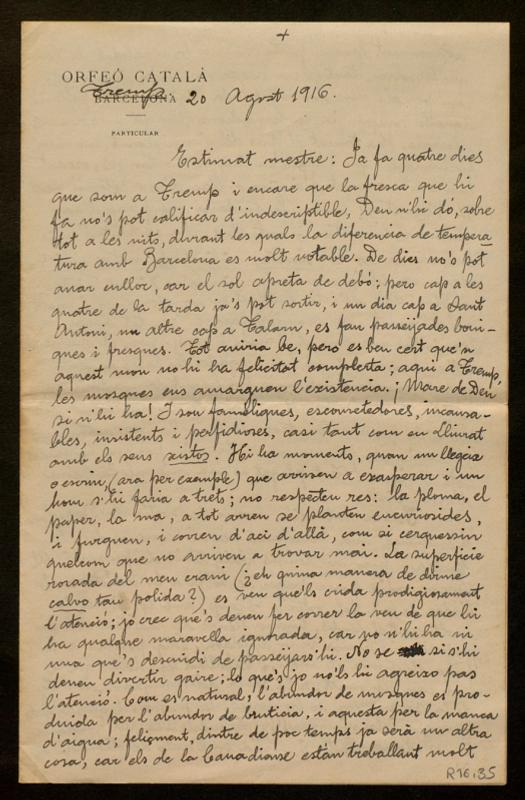 +
ORFEÓ CATALÀ
BARCELONA Tremp. 20 Agost 1916.
PARTICULAR
Estimat mestre: Ja fa quatre dies
que som a Tremp i encare que la fresca que hi
fa no's pot calificar d'indescriptible, Deu n'hi dó, sobre
tot a les nits, durant les quals la diferencia de tempera
tura amb Barcelona es molt notable. De dies no's pot
anar enlloc, car el sol apreta de debó; pero cap a les
quatre de la tarda ja's pot sortir, i un dia cap a Sant
Antoni, un altre cap a Talarn, es fan passeijades boni-
ques i fresques. Tot aniria be, pero es ben cert que'n
aquest mon no hi ha felicitat complerta; aqui a Tremp,
les mosques ens amarguen l'existencia. ¡Mare de Deu
si n'hi ha! I son famèliques, escometedores, incansa-
bles, insistents i perfidioses, casi tant com en Lliurat
amb els seus xistos. Hi ha moments, quan un llegeix
o escriu, (ara per exemple) que arriven a exasperar i un
hom s'hi faria a trets; no respecten res: la ploma, el
paper, la ma, a tot arreu se planten encuriosides,
i furguen, i corren d'aci d'allà, com si cerquessin
quelcom que no arriven a trovar mai. La superficie
rosada del meu crani (¿eh quina manera de dirme
calvo tan polida?) es veu que'ls crida prodigiosament
l'atenció; jo crec que's deuen fer correr la veu de que hi
ha qualque maravella ignorada, car no n'hi ha ni
una que's descuidi de passeijars'hi. No se si s'hi
deuen divertir gaire; lo que's jo no'ls hi agreixo pas
l'atenció. Com es natural, l'abundor de mosques es pro-
duiola per l'abundor de bruticia, i aquesta per la manca
d'aigua; feliçment, dintre de poc temps ja serà un altra
cosa, car els de la Canadianse estàn treballant molt
R16.35